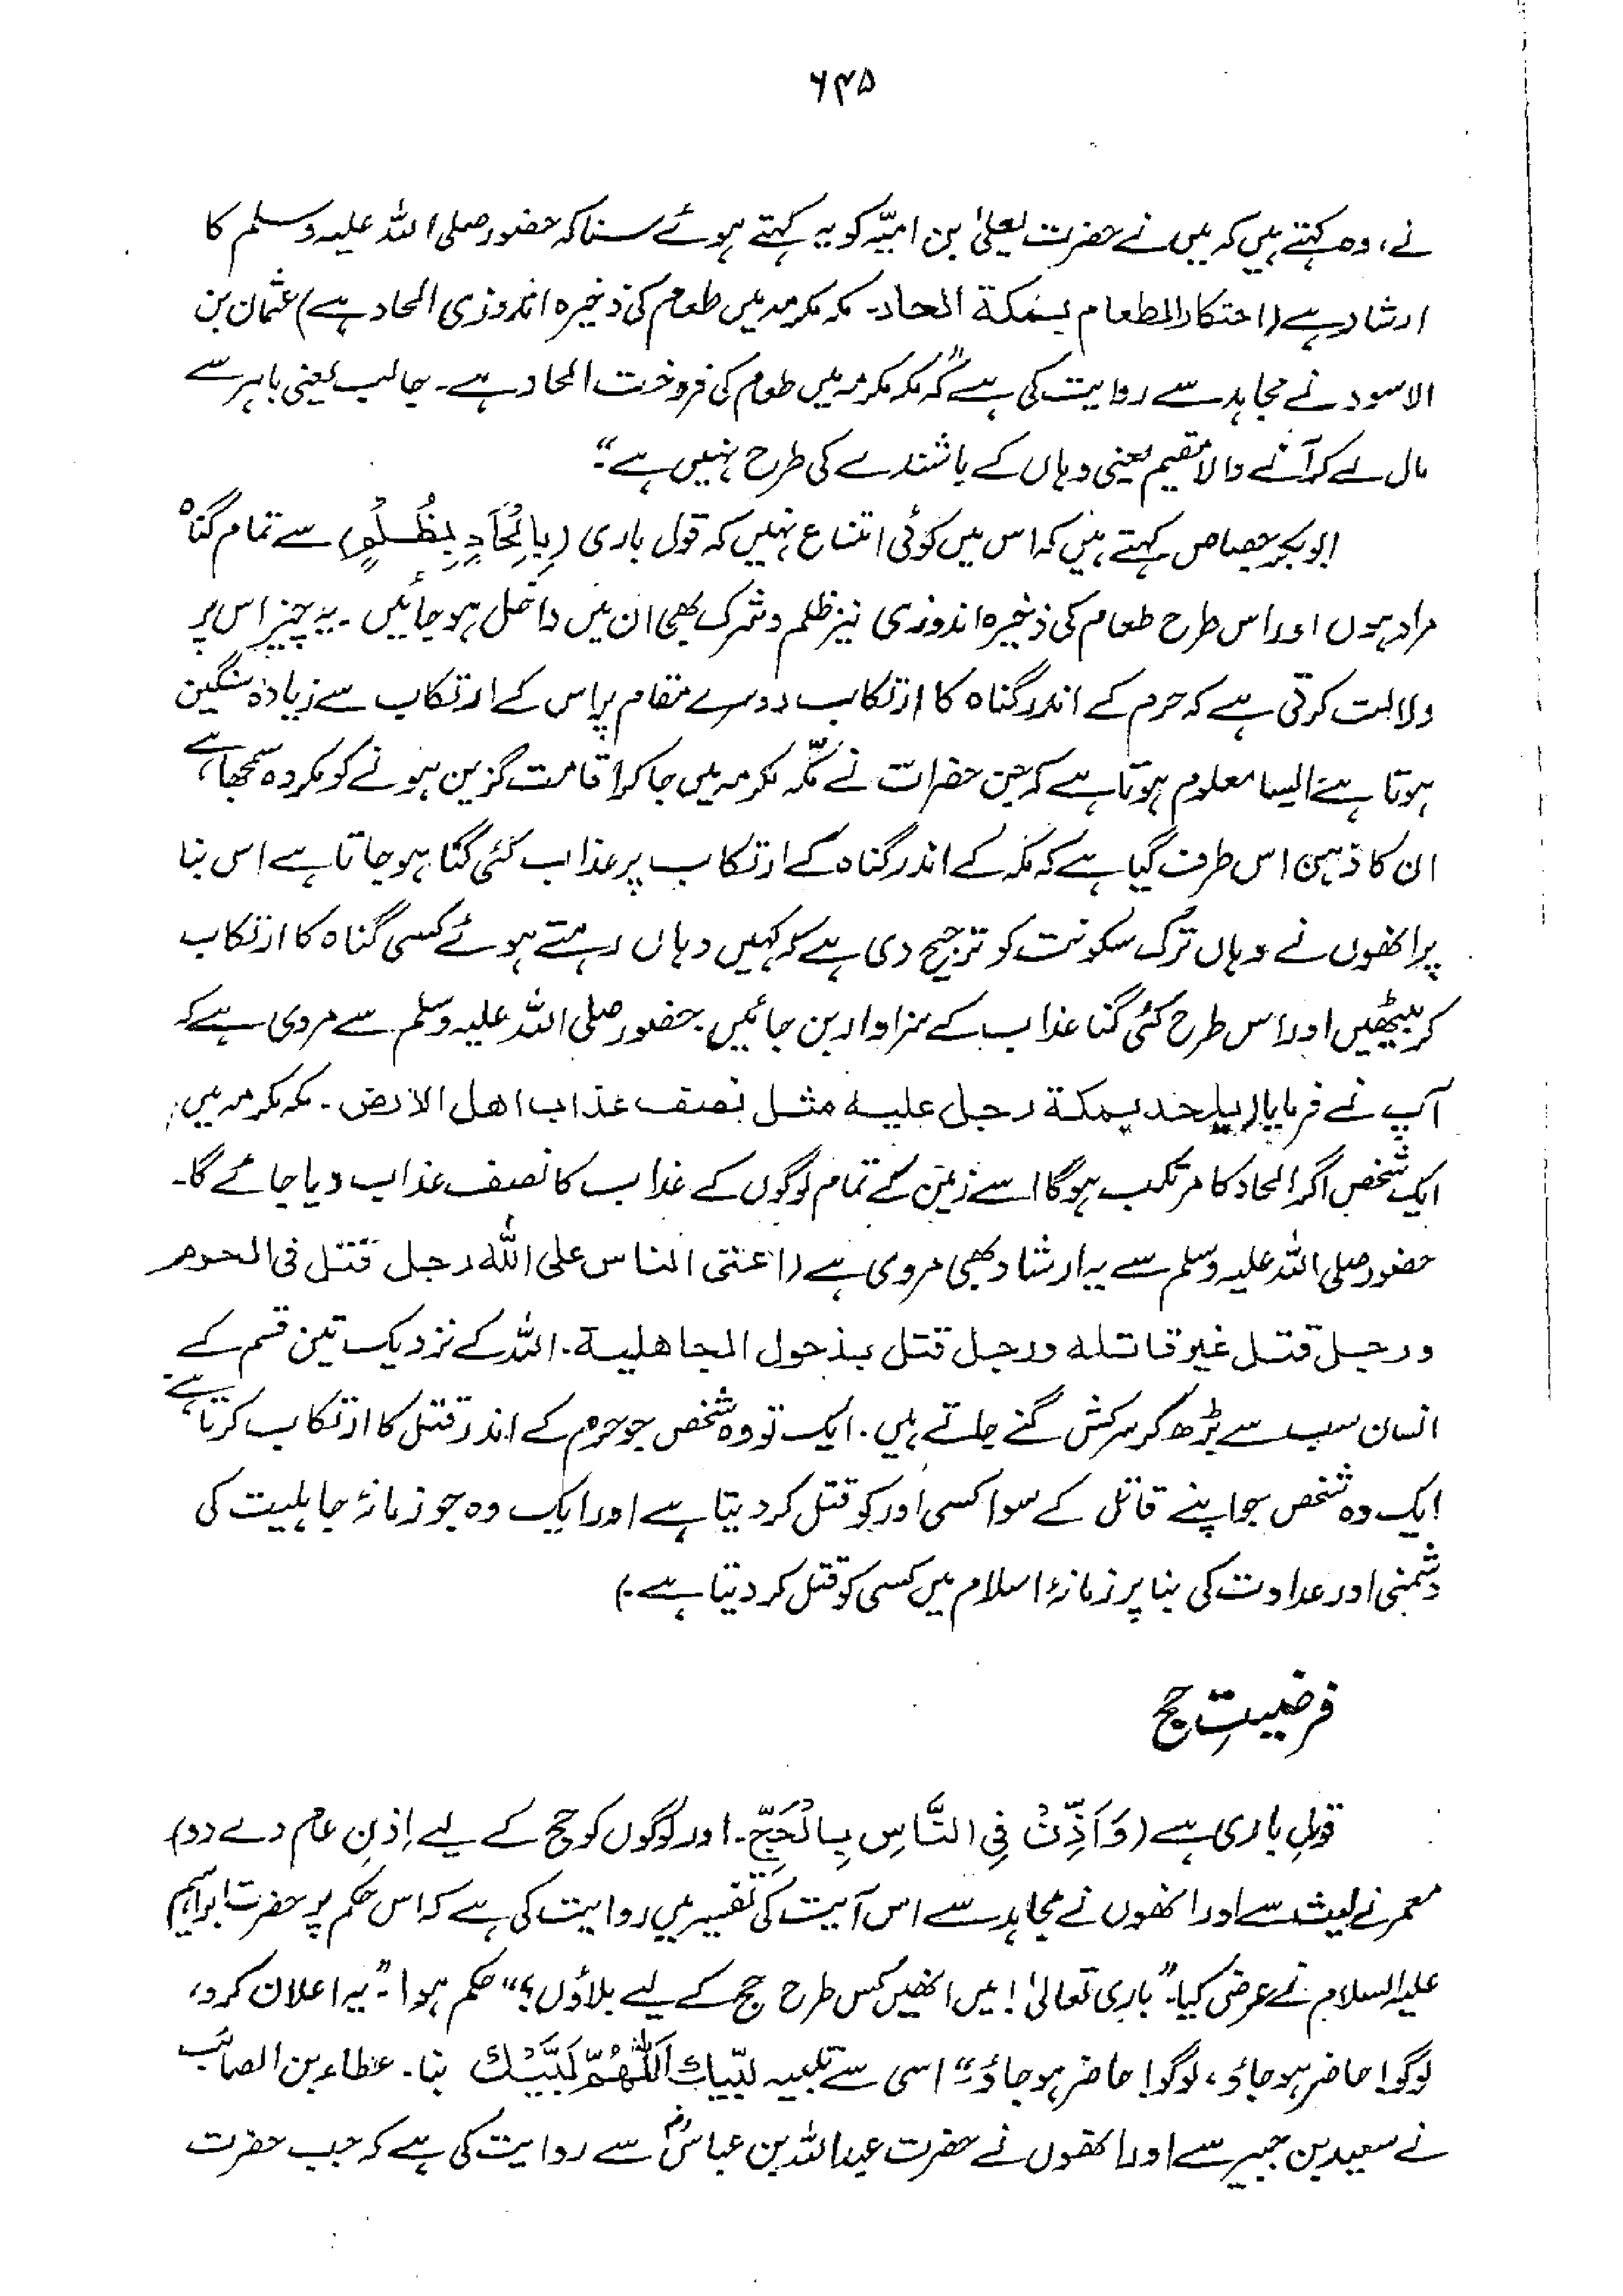 ۶۴۵
نے، وہ کہتے ہیں کہ میں نے حضرت یعلیٰ بن امیّہ کو یہ کہتے ہوئے سنا کہ حضور صلی اللہ علیہ وسلم کا
ارشاد ہے (احتکار الطعام بمکة الحاد۔ مکہ مکرمہ میں طعام کی ذخیرہ اندوزی الحاد ہے) عثمان بن
الاسود نے مجاہد سے روایت کی ہے "کہ مکہ مکرمہ میں طعام کی فروخت الحاد ہے۔ جالب یعنی باہر سے
مال لے کر آنے والا مقیم یعنی وہاں کے باشندے کی طرح نہیں ہے"۔
ابوبکر جصاص کہتے ہیں کہ اس میں کوئی امتناع نہیں کہ قول باری (بِاِلْحَادٍ بِظُلْمٍ) سے تمام گناہ
مراد ہوں اور اس طرح طعام کی ذخیرہ اندوزی نیز ظلم و شرک بھی ان میں داخل ہو جائیں۔ یہ چیز اس پر
دلالت کرتی ہے کہ حرم کے اندر گناہ کا ارتکاب دوسرے مقام پر اس کے ارتکاب سے زیادہ سنگین
ہوتا ہے ایسا معلوم ہوتا ہے کہ جن حضرات نے مکّہ مکرمہ میں جا کر اقامت گزین ہونے کو مکروہ سمجھا ہے،
ان کا ذہن اس طرف گیا ہے کہ مکہ کے اندر گناہ کے ارتکاب پر عذاب کئی گنا ہو جاتا ہے اس بنا
پر انھوں نے وہاں ترک سکونت کو ترجیح دی ہے کہ کہیں وہاں رہتے ہوئے کسی گناہ کا ارتکاب
کر بیٹھیں اور اس طرح کئی گنا عذاب کے سزاوار بن جائیں۔ حضور صلی اللہ علیہ وسلم سے مروی ہے کہ
آپ نے فرمایا (یلحد بمکة رجل علیه مثل نصف عذاب اهل الارض۔ مکہ مکرمہ میں
ایک شخص اگر الحاد کا مرتکب ہوگا اسے زمین کے تمام لوگوں کے عذاب کا نصف عذاب دیا جائے گا۔
حضور صلی اللہ علیہ وسلم سے یہ ارشاد بھی مروی ہے (اعتی الناس علی اللہ رجل قتل فی الحرم
ورجل قتل غیر قاتله ورجل قتل بذحول الجاهلیة۔ اللہ کے نزدیک تین قسم کے
انسان سب سے بڑھ کر سرکش گنے جاتے ہیں۔ ایک تو وہ شخص جو حرم کے اندر قتل کا ارتکاب کرتا ہے،
ایک وہ شخص جو اپنے قاتل کے سوا کسی اور کو قتل کر دیتا ہے اور ایک وہ جو زمانۂ جاہلیت کی
دشمنی اور عداوت کی بنا پر زمانۂ اسلام میں کسی کو قتل کر دیتا ہے۔)
فرضیتِ حج
قولِ باری ہے (وَاَذِّنْ فِی النَّاسِ بِالْحَجِّ۔ اور لوگوں کو حج کے لیے اِذنِ عام دے دو)
معمر نے لیث سے اور انھوں نے مجاہد سے اس آیت کی تفسیر میں روایت کی ہے کہ اس حکم پر حضرت ابراہیم
علیہ السلام نے عرض کیا۔ "باری تعالیٰ! میں انھیں کس طرح حج کے لیے بلاؤں؟" حکم ہوا۔ "یہ اعلان کرو،
لوگو! حاضر ہو جاؤ، لوگو! حاضر ہو جاؤ"۔ اسی سے تلبیہ لبّیك اَللّٰهُمَّ لَبَّیْكَ بنا۔ عطاء بن الصائب
نے سعید بن جبیر سے اور انھوں نے حضرت عبداللہ بن عباسؓ سے روایت کی ہے کہ جب حضرت